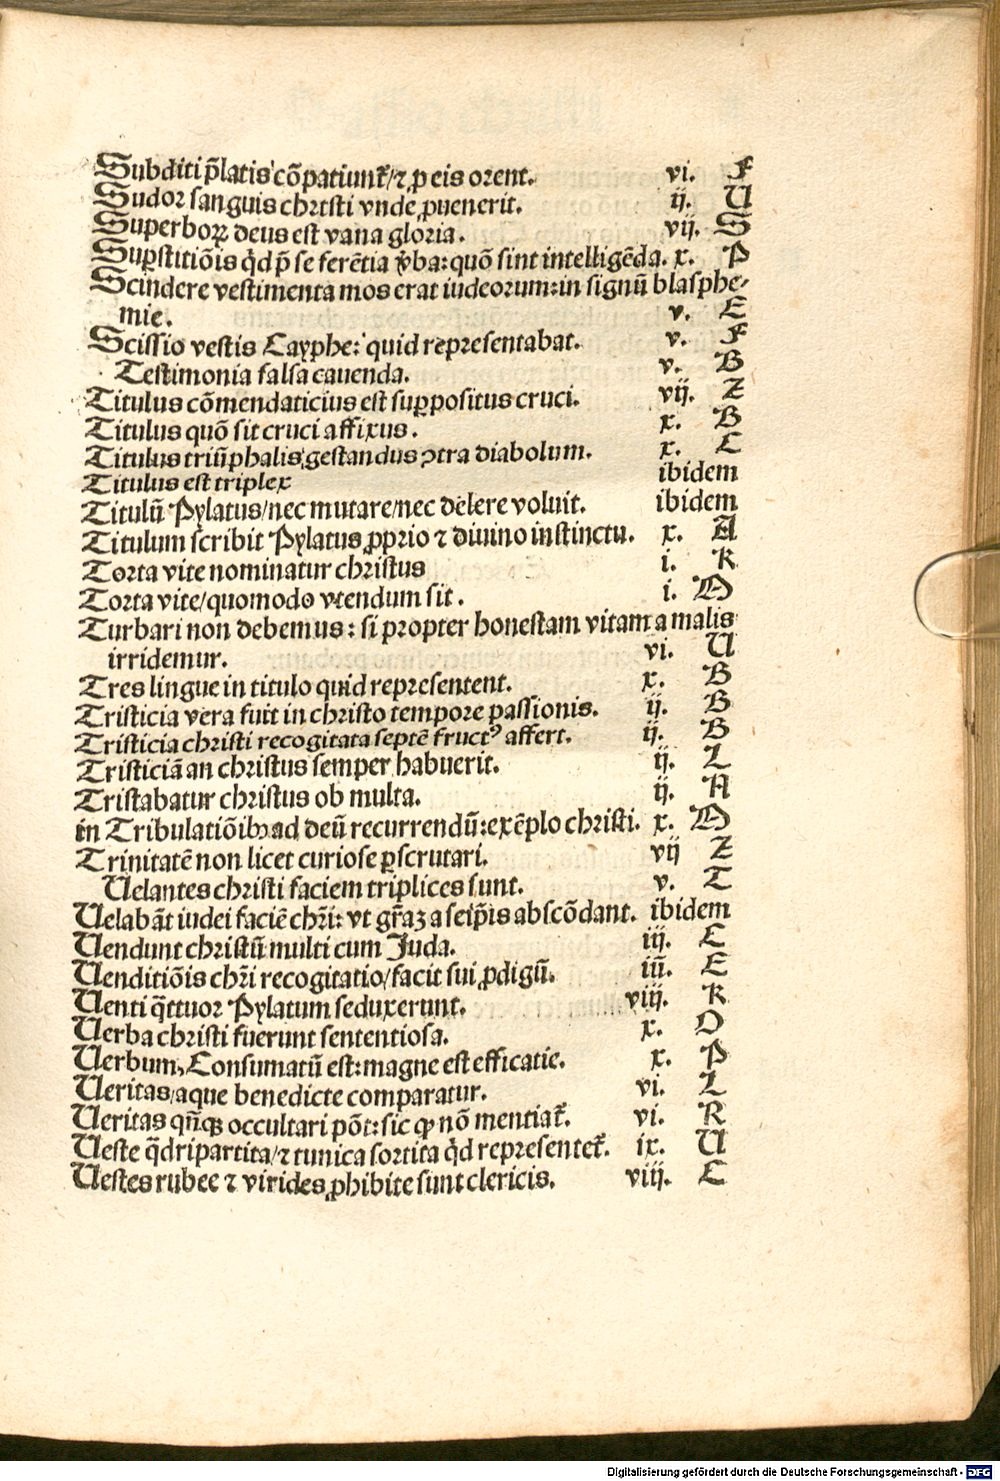 Subditi p̃latis cõpatiunt᷑/⁊ ꝓ eis orent. vi. F
Sudor sanguis christi vnde ꝓuenerit. ij. U
Superboꝝ deus est vana gloria. vij. S
Suꝑstitiõis q̃d p̃ se ferẽtia v̾ba: quõ sint intelligẽda. x. P
Scindere vestimenta mos erat iudeorum: in signũ blasphe-
mie. v. E
Scissio vestis Cayphe: quid representabat. v. F
Testimonia falsa cauenda. v. B
Titulus cõmendaticius est suꝑpositus cruci. vij. Z
Titulus quõ sit cruci affixus. x. B
Titulus triũphalis gestandus ꝯtra diabolum. x. C
Titulus est triplex ibidem
Titulũ Pylatus/nec mutare/nec delere voluit. ibidem
Titulum scribit Pylatus ꝓprio ⁊ diuino instinctu. x. A
Torta vite nominatur christus i. K
Torta vite/quomodo vtendum sit. i. M
Turbari non debemus: si propter honestam vitam a malis
irridemur. vi. U
Tres lingue in titulo quid representent. x. B
Tristicia vera fuit in christo tempore passionis. ij. B
Tristicia christi recogitata septẽ fructꝰ affert. ij. B
Tristiciã an christus semper habuerit. ij. L
Tristabatur christus ob multa. ij. A
in Tribulatiõibꝫ ad deũ recurrendũ: exẽplo christi. x. M
Trinitatẽ non licet curiose ꝑscrutari. vij Z
Uelantes christi faciem triplices sunt. v. T
Uelabãt iudei faciẽ chr̃i: vt gr̃aꝫ a seip̃is abscõdant. ibidem
Uendunt christũ multi cum Juda. iij. C
Uenditiõis chr̃i recogitatio/facit sui ꝓdigũ. iij. E
Uenti q̃ttuor Pylatum seduxerunt. viij. K
Uerba christi fuerunt sententiosa. x. O
Uerbum, Consumatũ est: magne est efficatie. x. P
Ueritas/aque benedicte comparatur. vi. L
Ueritas qñqꝫ occultari põt: sic ꝙ nõ mentiat᷑. vi. R
Ueste q̃dripartita/⁊ tunica sortita q̃d representet᷑. ix. U
Uestes rubee ⁊ virides ꝓhibite sunt clericis. viij. C
Digitalisierung gefördert durch die Deutsche Forschungsgemeinschaft - DFG